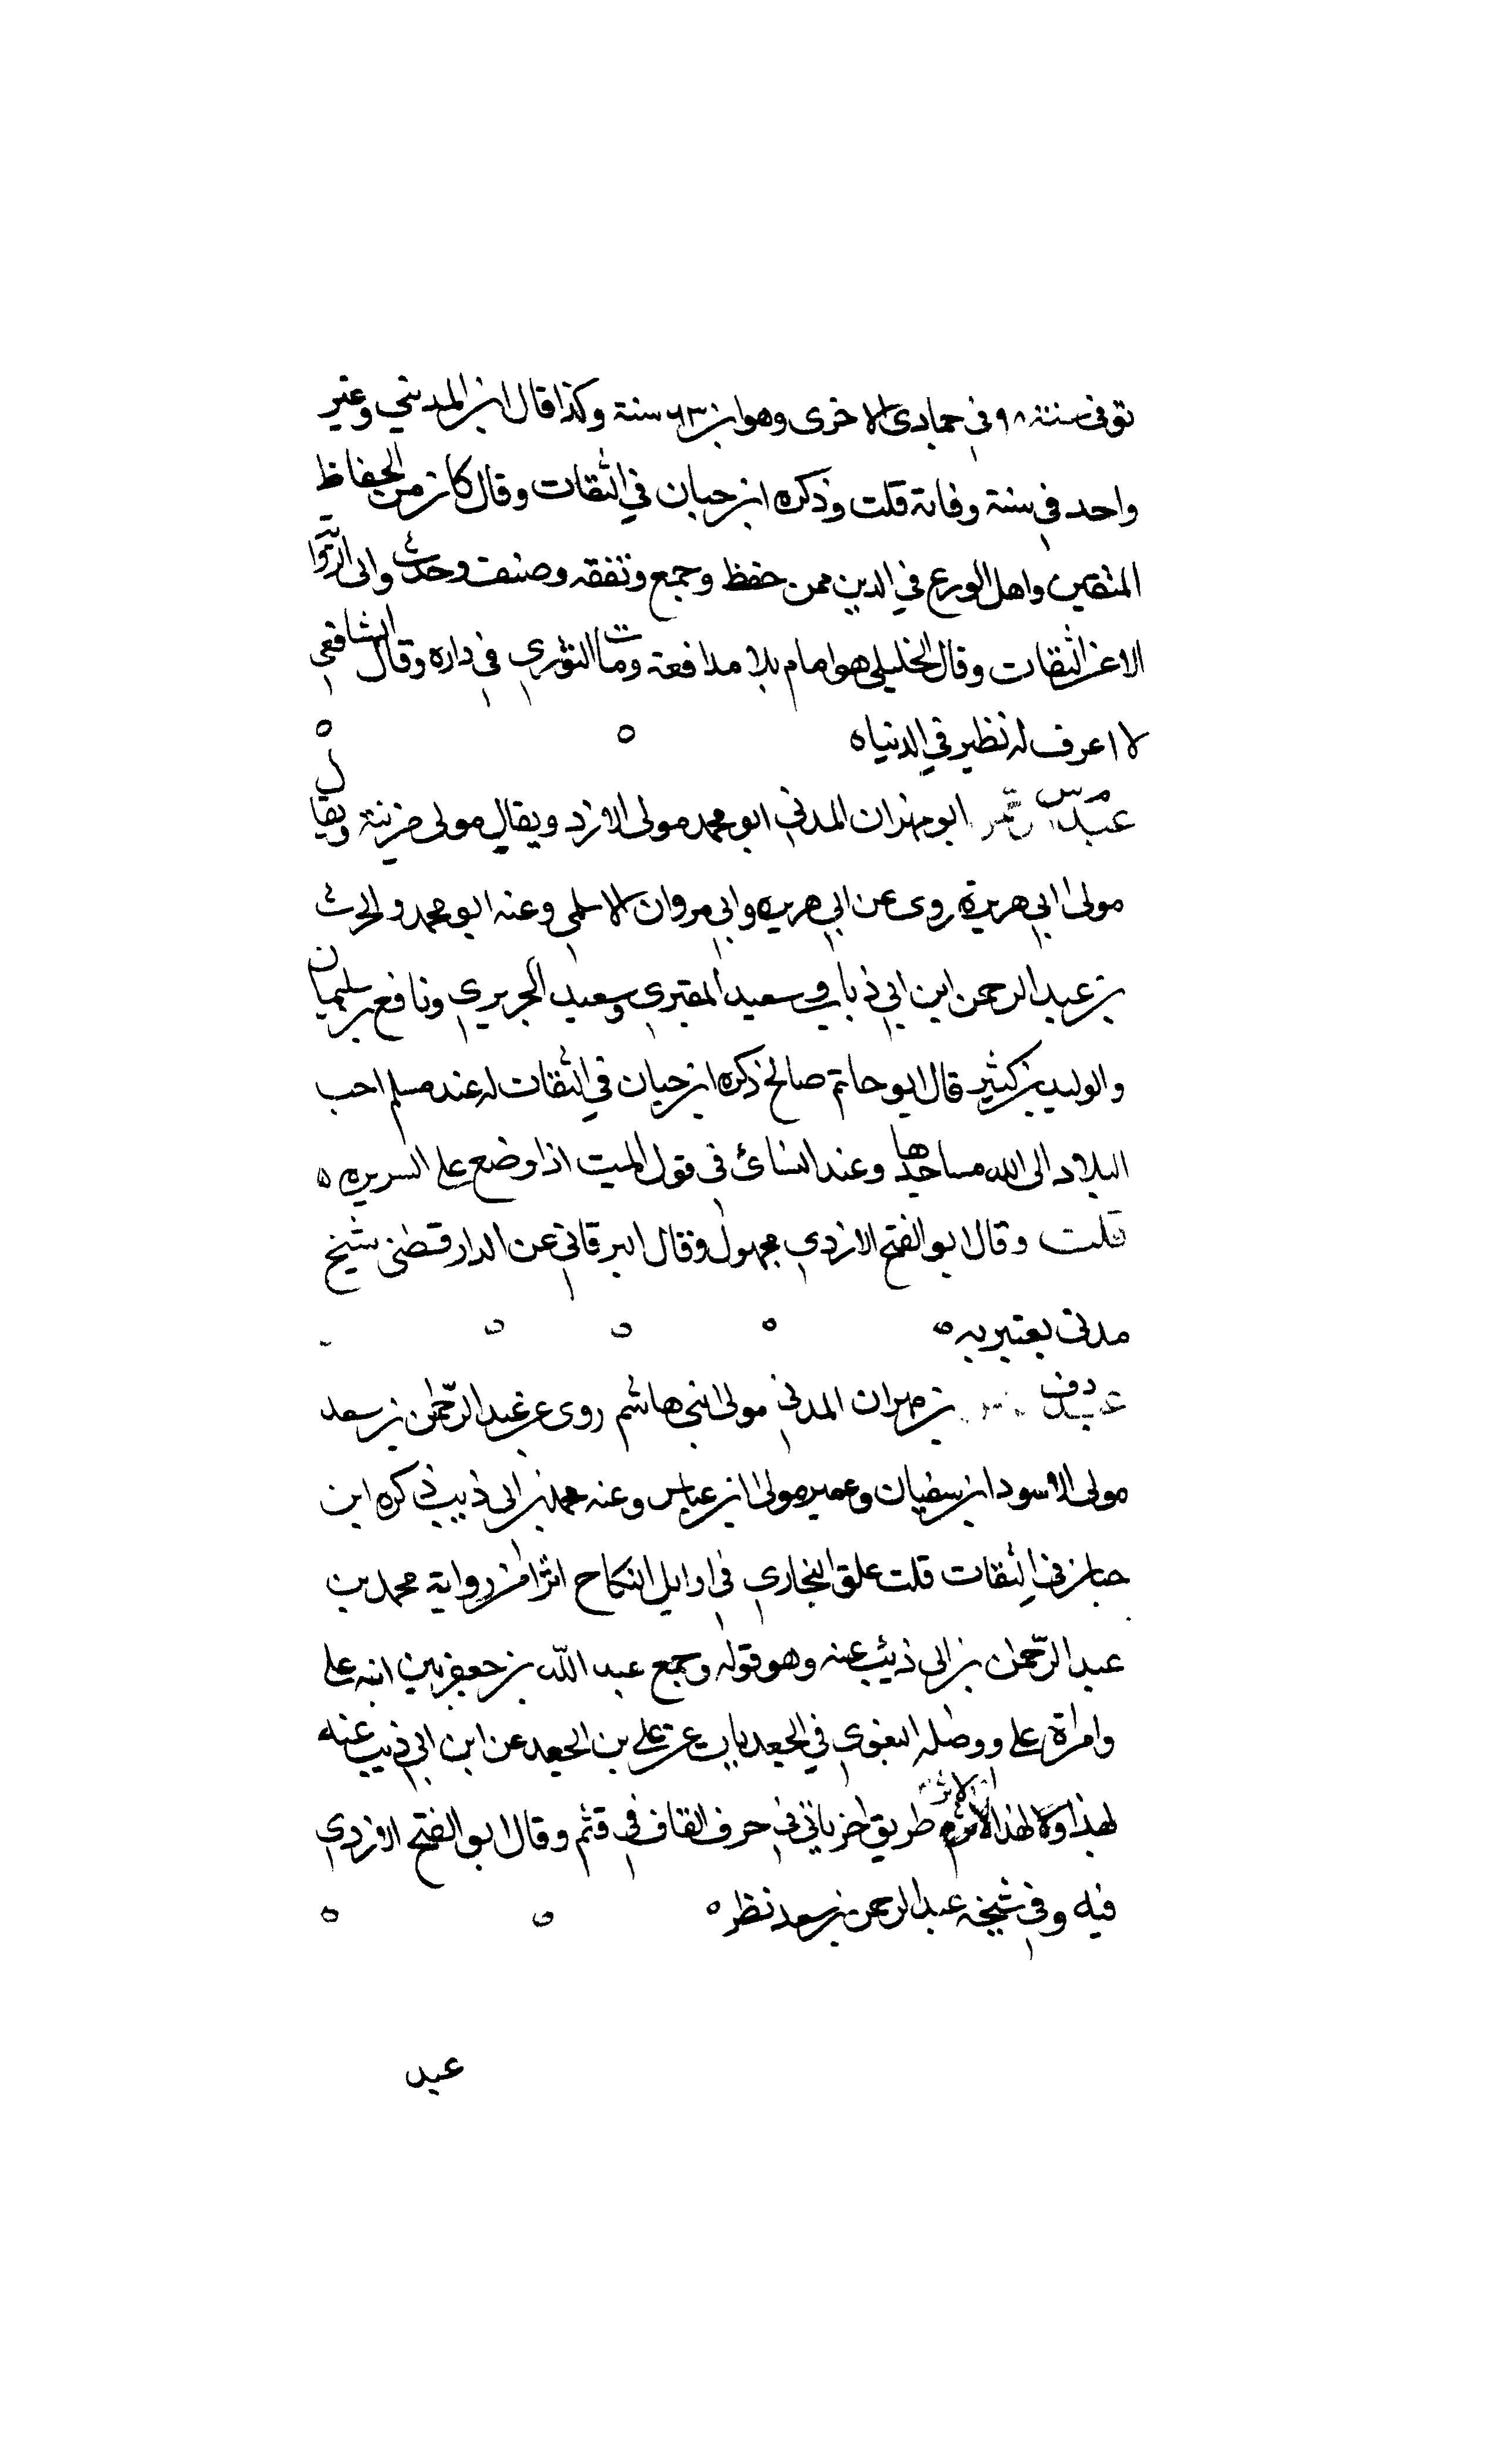 توفي سنة ٩٨ في جمادى الاخرى وهو ابن ٦٣ سنة وكذا قال ابن المديني وغير
واحد في سنة وفاته قلت وذكره ابن حبان في الثقات وقال كان من الحفاظ
المتقنين واهل الورع في الدين ممن حفظ وجمع وتفقه وصنف وحدث وابى الرواية
الا عن الثقات وقال الخليلي هو امام بلا مدافعة ومات الثوري في داره وقال الشافعي
لا اعرف له نظير في الدنيا ه
م س عبد ابو مهران المدني ابو محمد مولى الازد ويقال مولى مزينة ويقال
مولى ابي هريرة روى عن ابي هريره وابي مروان الاسلمي وعنه ابو محمد والحرث
بن عبد الرحمن ابن ابي ذباب وسعيد المقبري وسعيد الجريري ونافع بن سليمان
والوليد بن كثير قال ابو حاتم صالح ذكره ابن حبان في الثقات له عند مسلم احب
البلاد الى الله مساجدها وعند النسائ في قول الميت اذا وضع على السرير ه
قلت وقال ابو الفتح الازدي مجهول وقال البرقاني عن الدارقطني شيخ
مدني يعتبر به ه
د ق عبد بن مهران المدني مولى بني هاشم روى عن عبد الرحمن بن سعد
مولى الاسود ابن سفيان وعمير مولى ابن عباس وعنه محمد بن ابي ذيب ذكره ابن
حبان في الثقات قلت علق البخاري في اوايل النكاح اثرا من رواية محمد بن
عبد الرحمن بن ابي ذئب عنه وهو قوله وجمع عبد الله بن جعفر بين ابنه علي
وامراة علي ووصله البغوي في الجعديات عن علي بن الجعد عن ابن ابي ذيب عنه
لهذا ولهذا الاثر طريق اخر ياتي في حرف القاف في قثم وقال ابو الفتح الازدي
فيه وفي شيخه عبد الرحمن بن سعد نظر ه
عبد